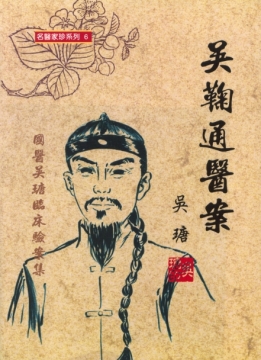 名醫家珍系列 6
吳鞠通醫案
吳瑭
國醫吳瑭臨床驗案集